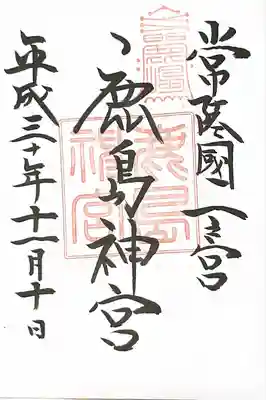 常陸國一之宮
鹿島神宮
平成三十年十一月十日
鹿島
神宮